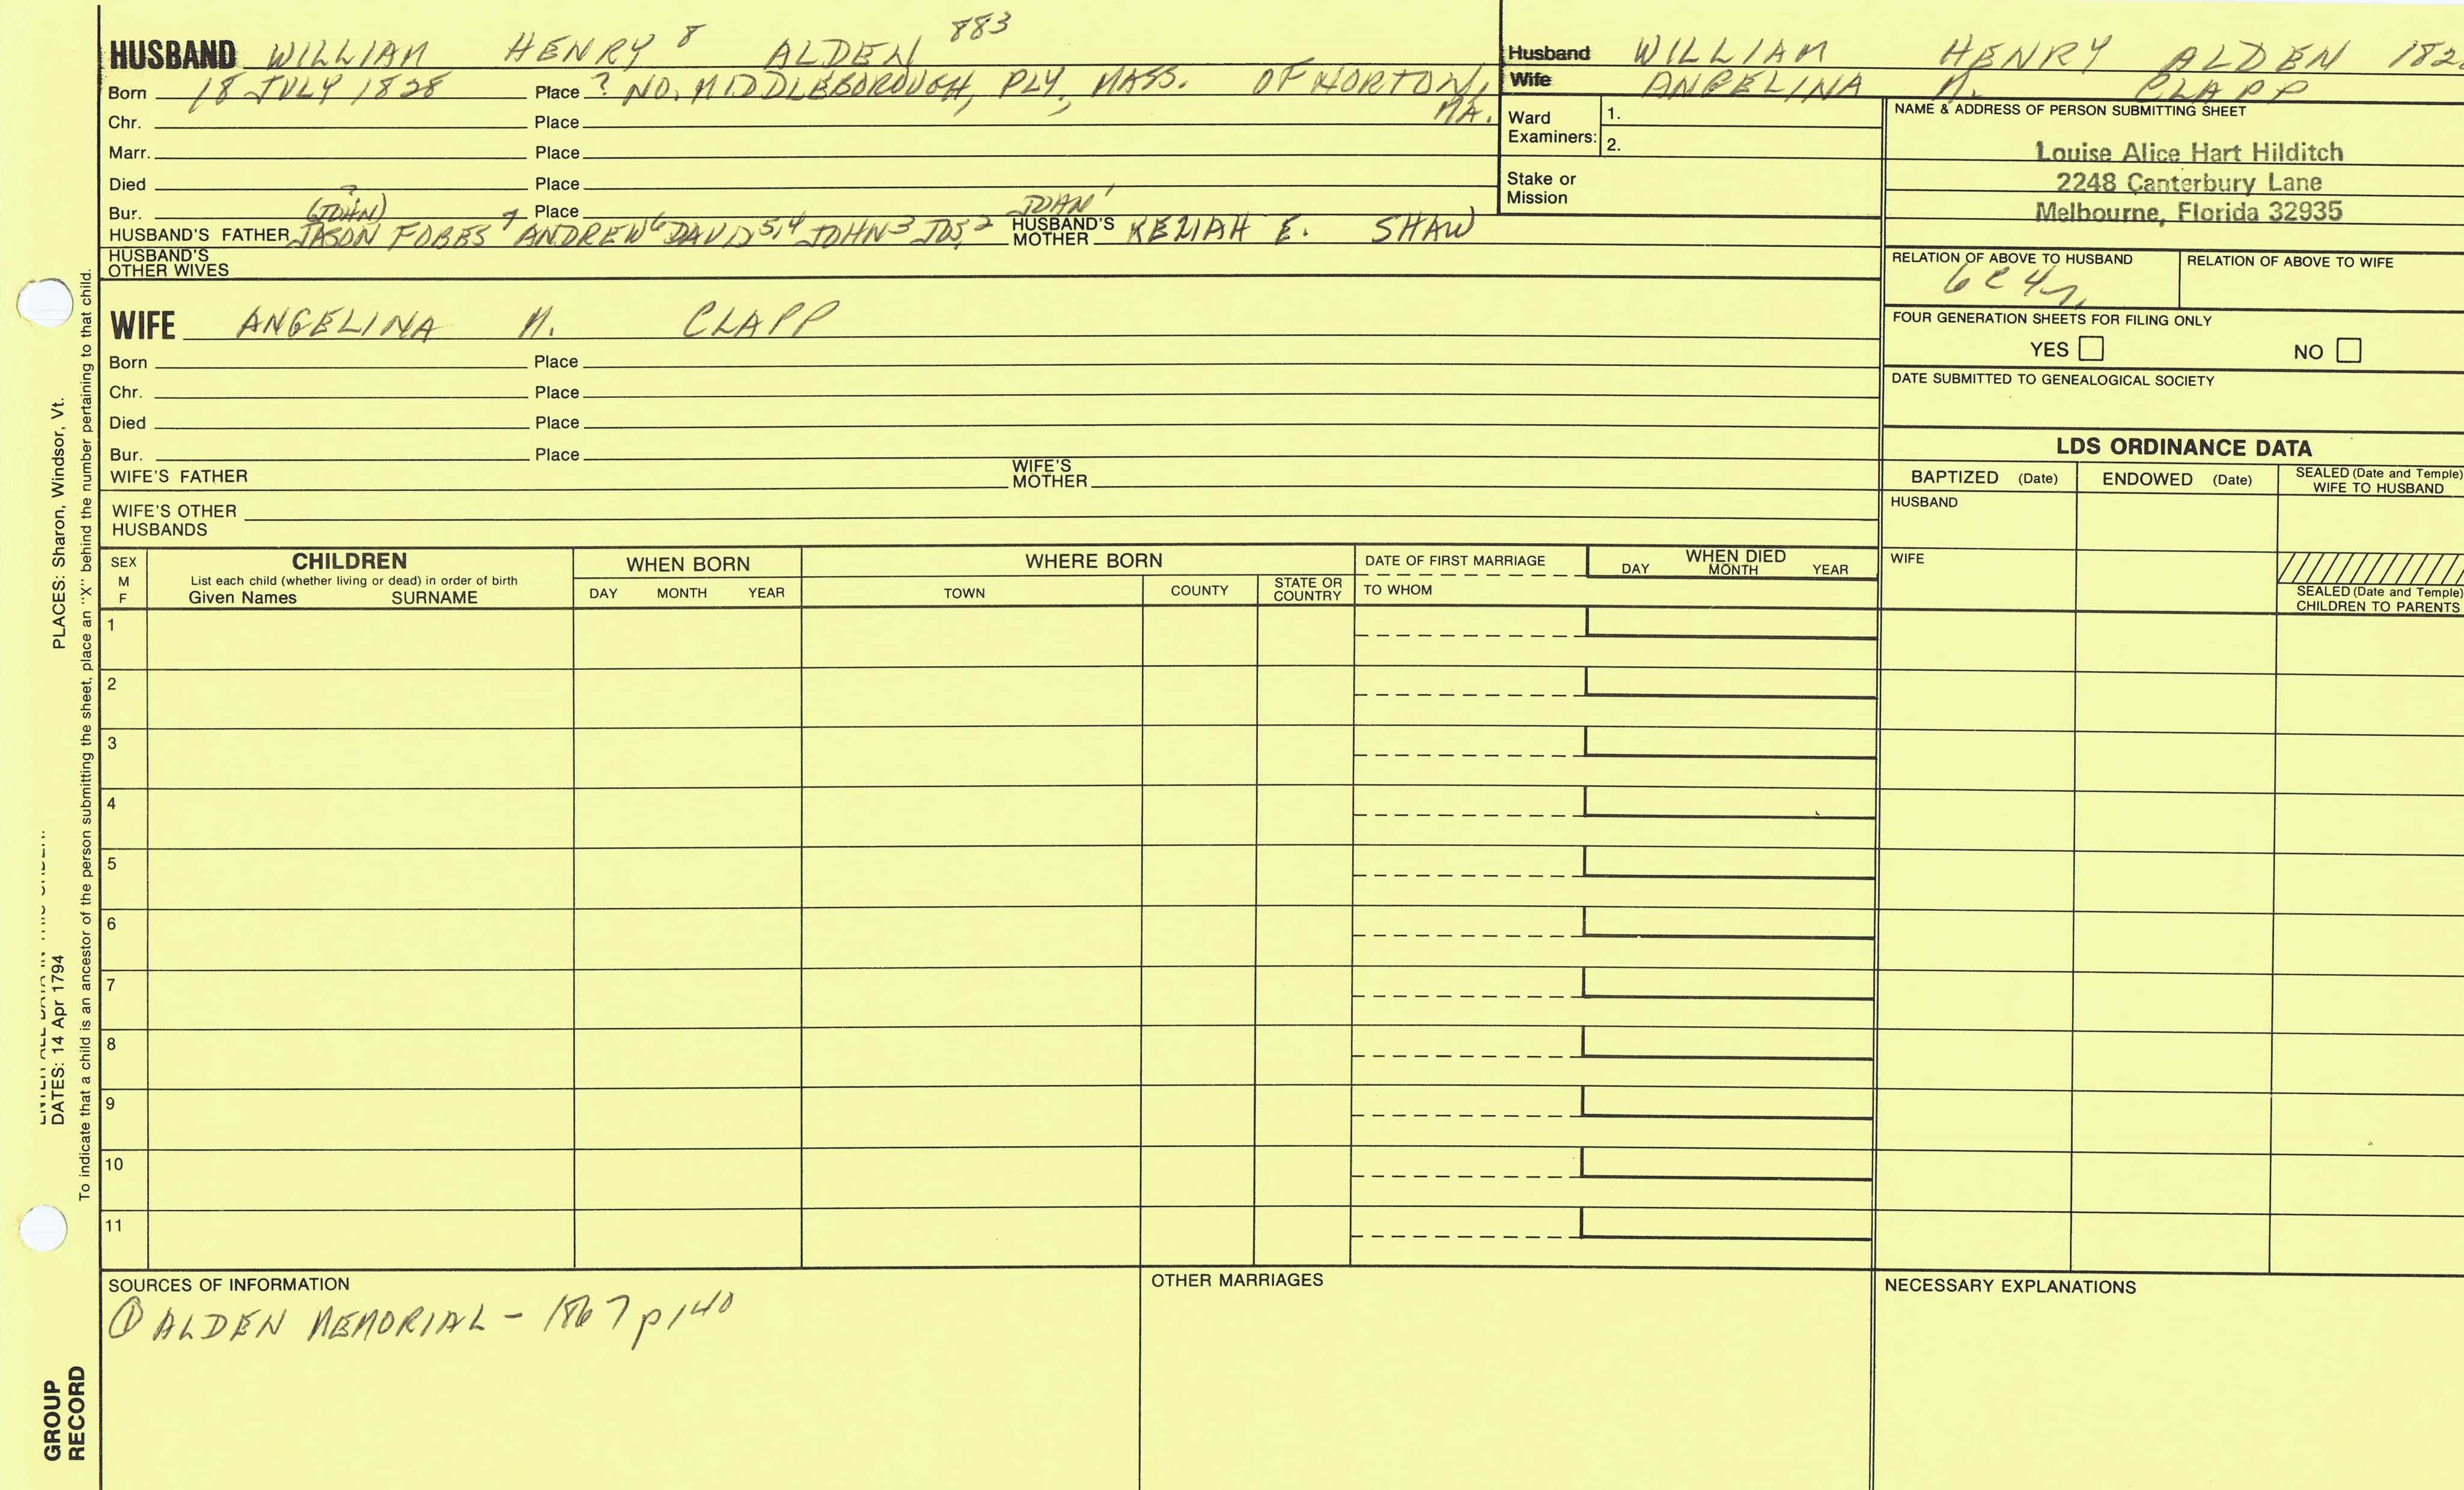 HUSBAND WILLIAM HENRY 8 ALDEN 883
Born 18 JULY 1828 Place ? NO. MIDDLEBOROUGH, PLY, MASS. OF NORTON, MA.
Chr. Place
Marr. Place
Died Place
Bur. Place
(JOHN) ?
HUSBAND'S FATHER JASON FOBES 7 ANDREW 6 DAVID 5,4 JOHN 3 JOS, 2 JOHN 1 HUSBAND'S MOTHER KEZIAH E. SHAW
HUSBAND'S OTHER WIVES
WIFE ANGELINA M. CLAPP
Born Place
Chr. Place
Died Place
Bur. Place
WIFE'S FATHER WIFE'S MOTHER
WIFE'S OTHER HUSBANDS
Husband WILLIAM HENRY ALDEN 182
Wife ANGELINA M. CLAPP
Ward Examiners: 1.
2.
Stake or Mission
NAME & ADDRESS OF PERSON SUBMITTING SHEET
Louise Alice Hart Hilditch
2248 Canterbury Lane
Melbourne, Florida 32935
RELATION OF ABOVE TO HUSBAND RELATION OF ABOVE TO WIFE
6C4
FOUR GENERATION SHEETS FOR FILING ONLY
YES NO
DATE SUBMITTED TO GENEALOGICAL SOCIETY
LDS ORDINANCE DATA
BAPTIZED (Date) ENDOWED (Date) SEALED (Date and Temple) WIFE TO HUSBAND
HUSBAND
WIFE
SEALED (Date and Temple) CHILDREN TO PARENTS
SEX M F
CHILDREN
List each child (whether living or dead) in order of birth
Given Names SURNAME
WHEN BORN
DAY MONTH YEAR
WHERE BORN
TOWN COUNTY STATE OR COUNTRY
DATE OF FIRST MARRIAGE
TO WHOM
WHEN DIED
DAY MONTH YEAR
1
2
3
4
5
6
7
8
9
10
11
SOURCES OF INFORMATION
① ALDEN MEMORIAL - 1867 p140
OTHER MARRIAGES
NECESSARY EXPLANATIONS
PLACES: Sharon, Windsor, Vt.
DATES: 14 Apr 1794
To indicate that a child is an ancestor of the person submitting the sheet, place an "X" behind the number pertaining to that child.
GROUP
RECORD